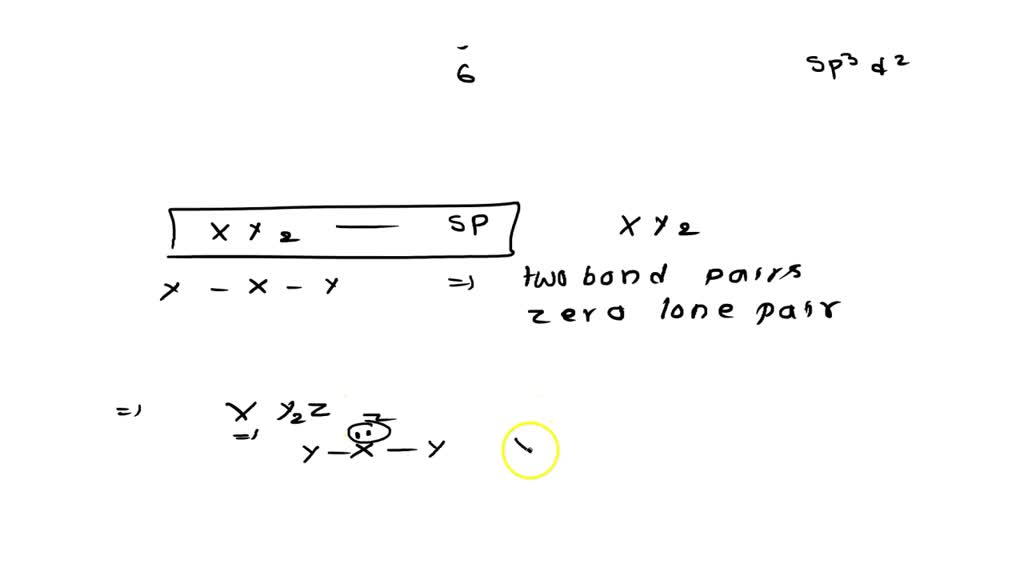 6 sp³d²
XY₂ — SP XY₂
Y - X - Y => two bond pairs
zero lone pair
=> XY₂Z
=> Z
Y - X - Y